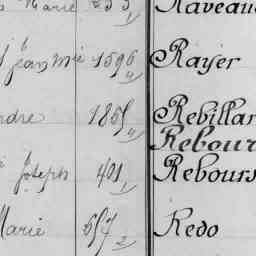 Marie 255 Raveau
Jean Mie 1596 Rayer
ndre 185 Rebillar
Rebour
Joseph 401 Rebours
Marie 657 Redo